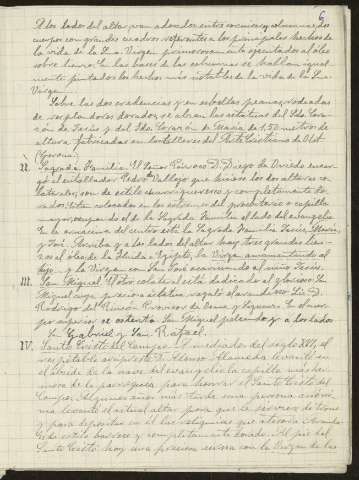 6
A los lados del altar van adosados entre cornisas y columnas dos
cuerpos con grandes cuadros referentes a los principales hechos de
la vida de la Sma. Virgen primorosamente ejecutados al óleo
sobre lienzo. En las bases de las columnas se hallan igual-
mente pintados los hechos más notables de la vida de la Sma.
Virgen.
Sobre las dos credencias y en esbeltas peanas, rodeadas
de resplandores dorados, se alzan las estatuas del Sdo. Cora-
zón de Jesús y del Sdo. Corazón de María de 1,50 metros de
altura, fabricadas en los talleres del Arte Cristiano de Olot
(Gerona).
II. Sagrada Familia. El Señor D. Diego de Oviedo encar-
gó al entallador Pedro Vallejo que hiciese los dos altares co-
laterales; son de estilo churrigueresco y completamente do-
rados. Están colocados en los extremos del presbiterio o capilla
mayor, ocupando el de la Sagrada Familia el lado del evangelio.
En la hornacina del centro está la Sagrada Familia Jesús, María,
y José. Arriba y a los lados del altar hay tres grandes lien-
zos al óleo de la Huida a Egipto, la Virgen amamantando al
hijo y la Virgen con San José
III. San Miguel. El otro colateral está dedicado al glorioso San
Miguel cuya preciosa estatua regaló
Rodrigo del Rincón
por superior se ostenta San Miguel peleando y a los lados
S. Gabriel y San Rafael.
IV. Santo Cristo del Campo. A mediados del siglo XVI, el
respetable arcipreste D. Alonso Alameda levantó en
el ábside de la nave del evangelio la capilla más her-
mosa de la parroquia para honrar el Santo Cristo del
Campo. Algunos años más tarde una persona anóni-
ma levantó el actual altar para que le sirviese de trono
y para depositar en él las reliquias que atesora Aranda.
Es de estilo barroco y completamente dorado. Al pie del
Santo Cristo hay una preciosa escena con la Virgen de los